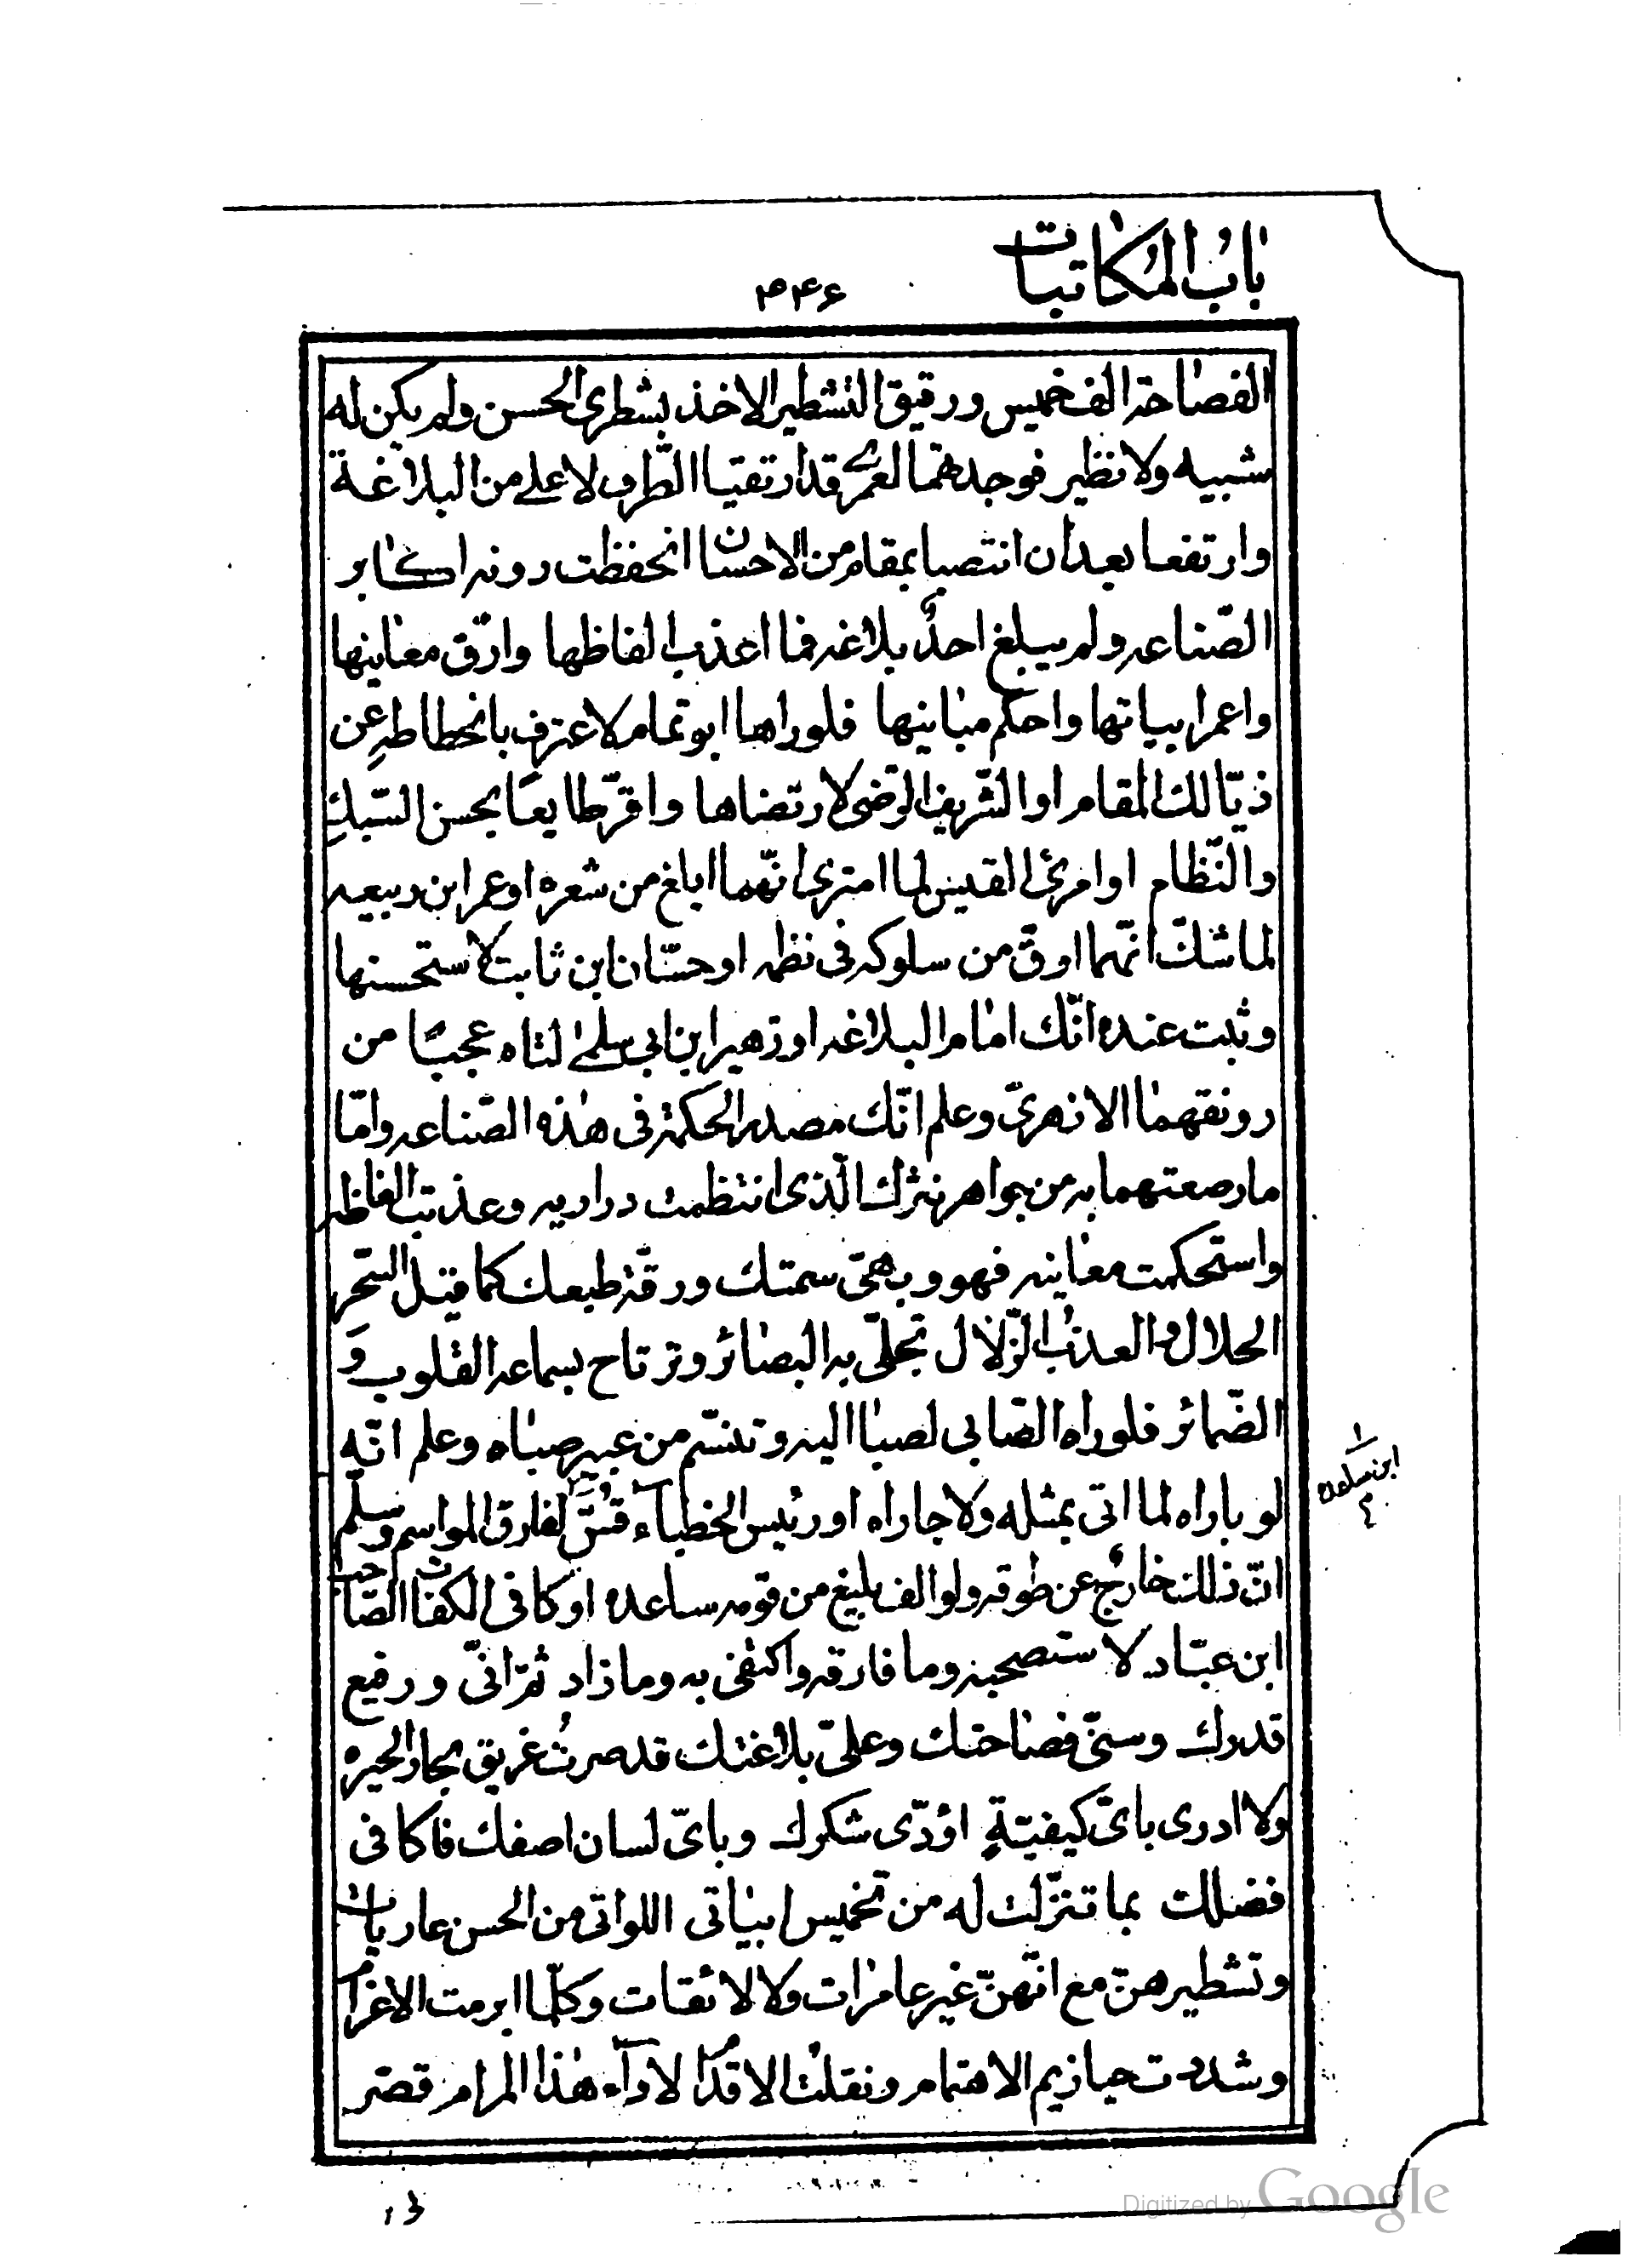 باب المكاتبات
۳۴۶
الفصاحة الف خميس ورقيق التشطير الاخذ بشطرى الحسن ولم يكن له
شبيه ولا نظير فوجدهما لعمرى قد ارتقيا الطّرف لاعلى من البلاغة
وارتفعا بعد ان انتصبا بمقام من الاحسان انخفظت دونه اكابر
الصّناعه ولم يبلغ احدٌ بلاغه فما اعذب الفاظها وارّق معانيها
واعمر ابياتها واحكم مبانيها فلوراها ابو تمام لاعترف بانحطاطه عن
ذيّالك المقام او الشّريف الرّضى لارتضاها واقرّ طايعًا بحسن السّبك
والنّظام او امرئ القيس لما امترى انّهما ابلغ من شعره او عمر ابن ربيعه
لما شكّ انّهما اوقّ من سلوكه فى نظمه او حسّان ابن ثابت لاستحسنها
وثبت عنده انّك امام البلاغه او زهير ابن ابى سلمى لتاه عجبًا من
رونقهما الازهرىّ وعلم انّك مصدر الحكمة فى هذه الصّناعه وامّا
ما رصعتهما به من جواهر نثرك الّذى انتظمت دراريه وعذبت الفاظه
واستحكمت معانيه فهو وبهىّ سمتك ورقّة طبعك كما قيل السّحر
الحلال والعذب الزّلال تجلّى به البصائر وترتاح بسماعه القلوب و
الضّمائر فلوراه الصّابى لصبا اليه وتنسّم من عبير صباه وعلم انّه
لو باراه لما اتى بمثله ولا جاراه او رئيس الخطباء قسّ لفارق المواسم وسلّم
انّ ذلك خارجٌ عن طوقه ولو الف بليغ من قومه ساعده او كافى الكفات الصّاحب
ابن عبّاد لاستصحبه وما فارقه واكتفى به وما زاد ثمّ انّى ورفيع
قدرك وسنىّ فصاحتك وعلىّ بلاغتك قد صرتُ غريق بحار الحيره
ولا ادرى باىّ كيفيّةٍ اؤدّى شكرك وباىّ لسان اصفك فاكافى
فضلك بما تنزّلت له من تخميس ابياتى اللواتى من الحسن عاريات
وتشطيرهنّ مع انّهنّ غير عامرات ولا لائقات وكلّما ابرمت الاعزام
وشددت حيازيم الاهتمام ونقلت الاقدام لاداء هذا المرام قصّر